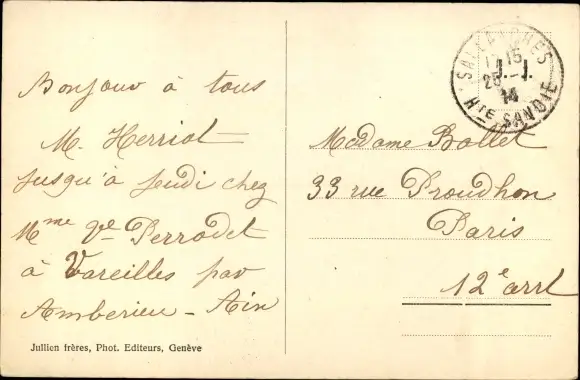 Bonjour à tous
M. Herriot
jusqu'à jeudi chez
Mme Ve Perrodet
à Vareilles par
Amberieu - Ain
Jullien frères, Phot. Editeurs, Genève
SALLANCHES
17 15
25 - 7
14
Hte SAVOIE
Madame Bollet
33 rue Proudhon
Paris
12e arrt